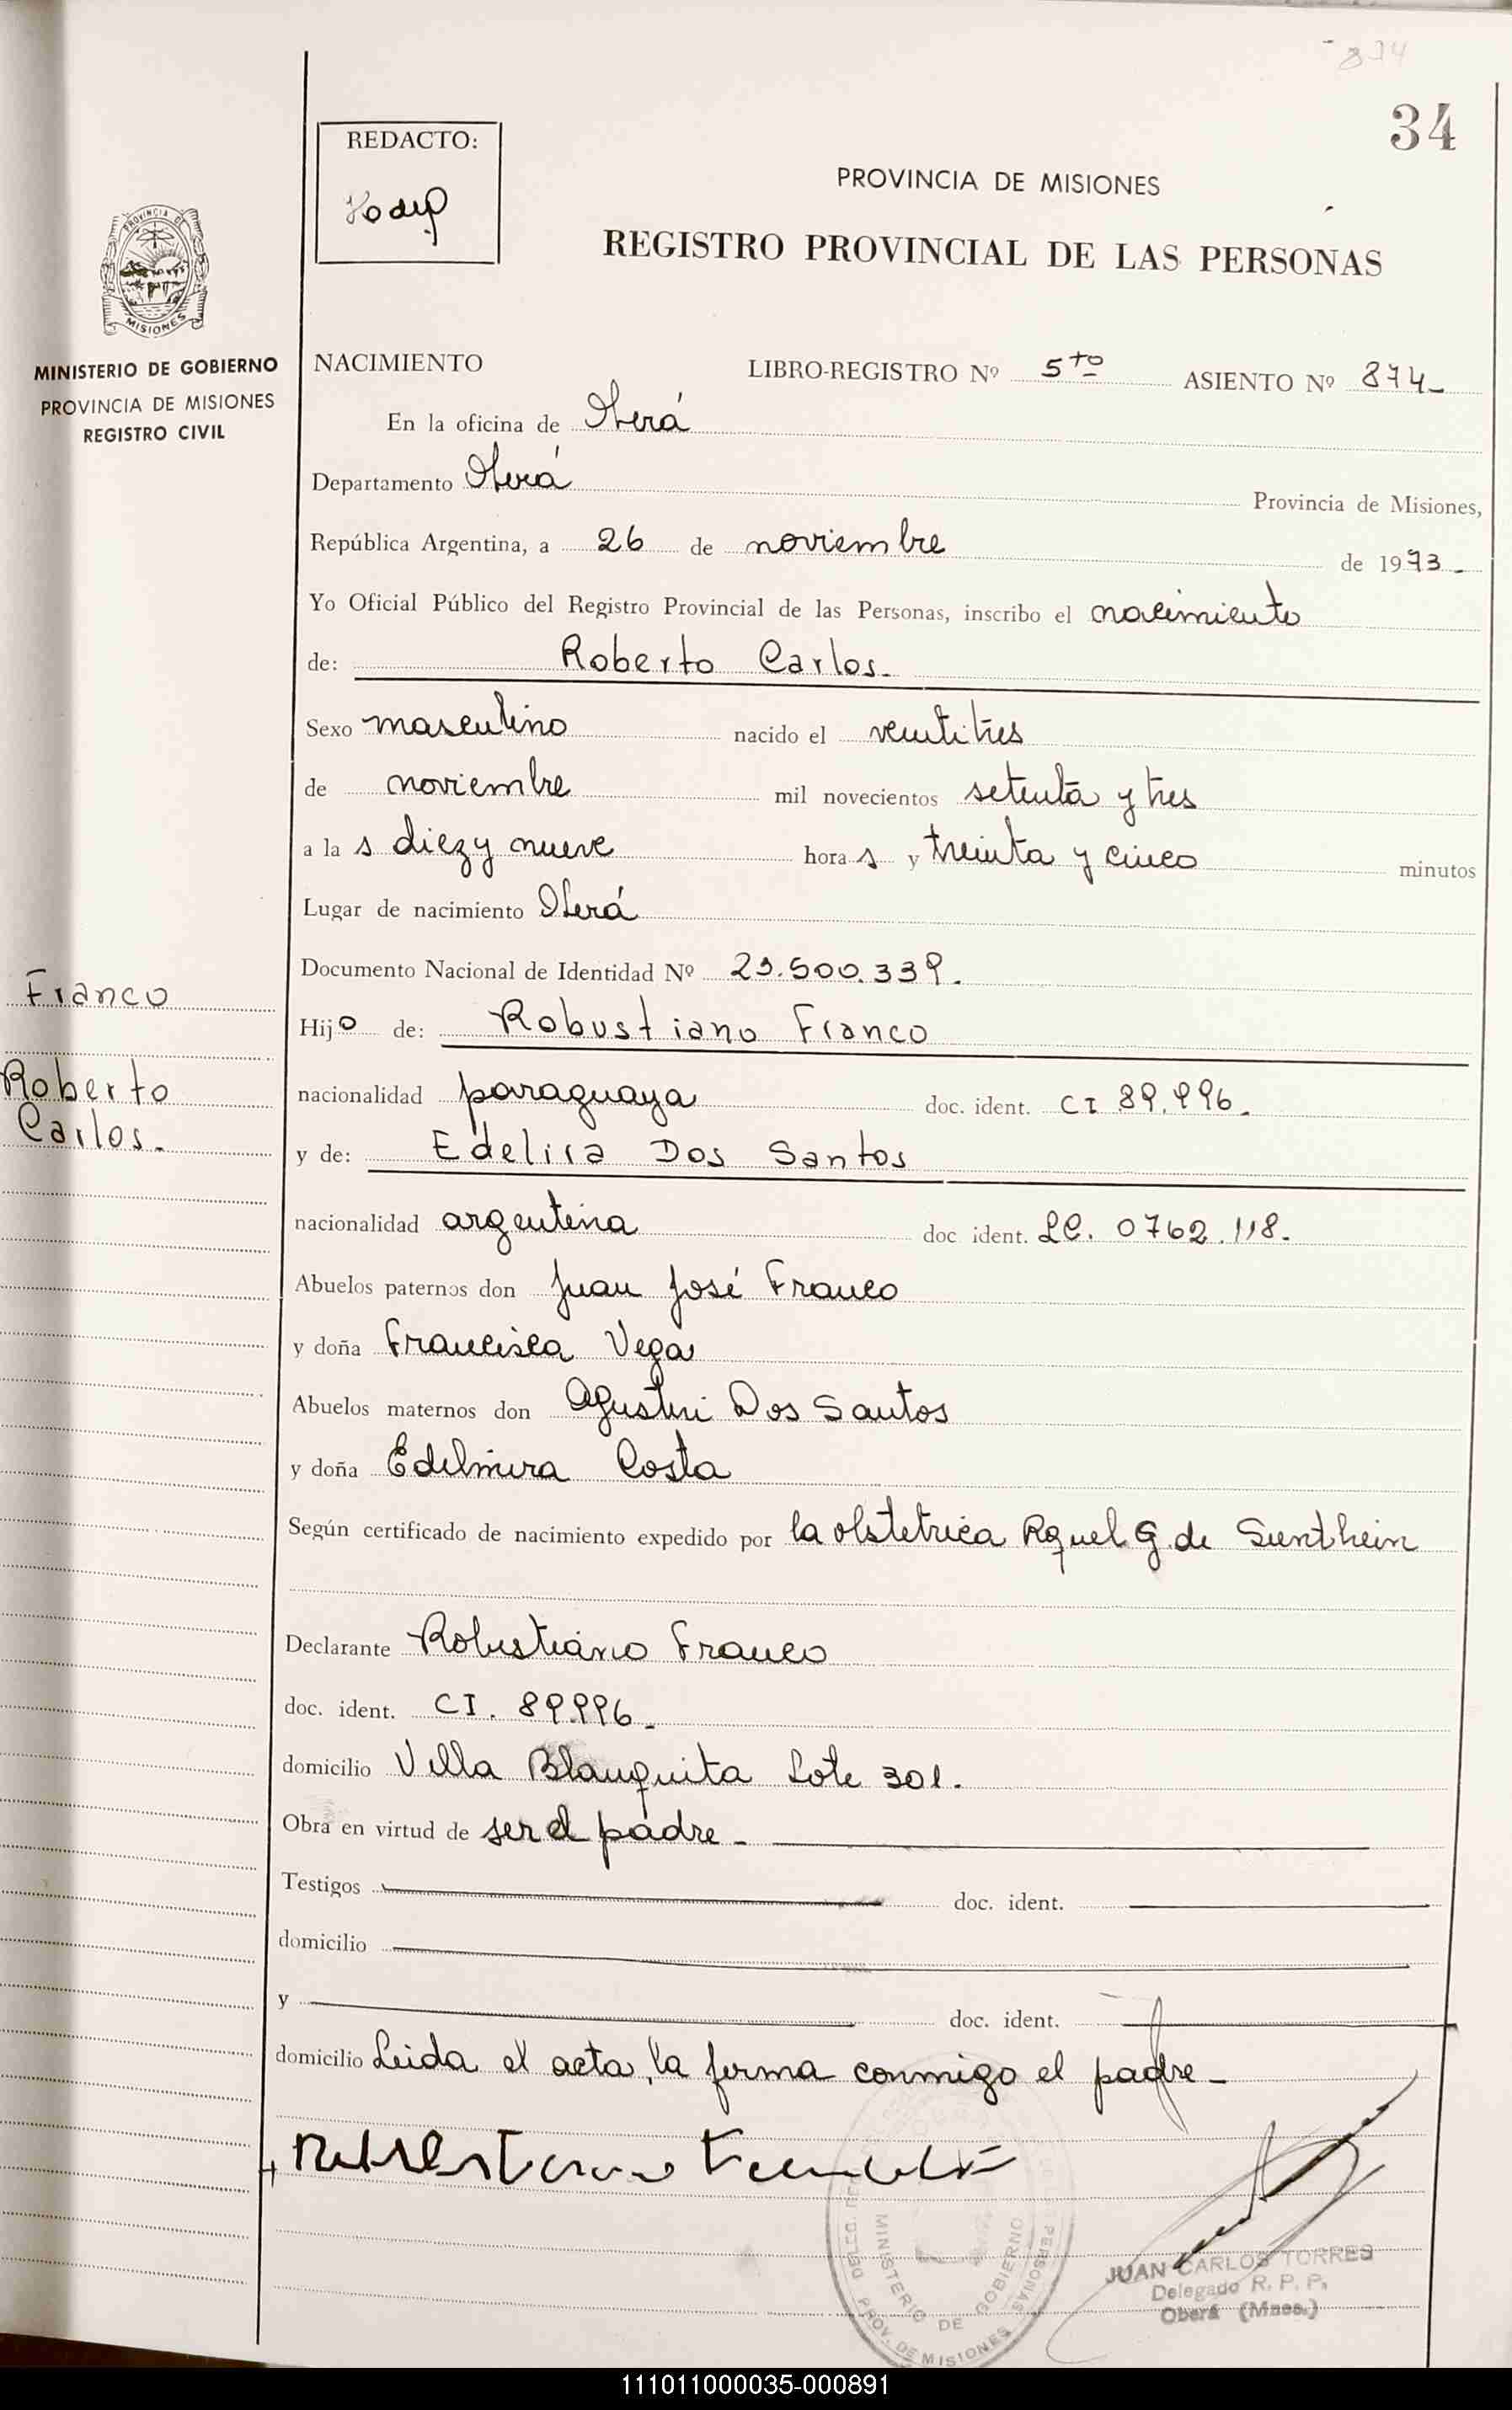 874
34
REDACTO:
PROVINCIA DE MISIONES
REGISTRO PROVINCIAL DE LAS PERSONAS
PROVINCIA DE
MISIONES
MINISTERIO DE GOBIERNO
PROVINCIA DE MISIONES
REGISTRO CIVIL
NACIMIENTO LIBRO-REGISTRO Nº 5to ASIENTO Nº 874-
En la oficina de Oberá
Departamento Oberá Provincia de Misiones,
República Argentina, a 26 de noviembre de 1973.-
Yo Oficial Público del Registro Provincial de las Personas, inscribo el nacimiento
de: Roberto Carlos.-
Sexo masculino nacido el veintitres
de noviembre mil novecientos setenta y tres
a la s diez y nueve hora s y treinta y cinco minutos
Lugar de nacimiento Oberá
Documento Nacional de Identidad Nº 23.500.339.
Franco
Hijo de: Robustiano Franco
Roberto
Carlos.-
nacionalidad paraguaya doc. ident. CI 89.996.
y de: Edelira Dos Santos
nacionalidad argentina doc ident. LC. 0762.118.-
Abuelos paternos don Juan José Franco
y doña Francisca Vega
Abuelos maternos don Agustin Dos Santos
y doña Edelmira Costa
Según certificado de nacimiento expedido por la obstetrica Rquel G. de
Declarante Robustiano Franco
doc. ident. CI. 89.996.-
domicilio Villa Blanquita Lote 301.
Obra en virtud de ser el padre.-
Testigos doc. ident.
domicilio
y doc. ident.
domicilio Leida el acta, la firma conmigo el padre.-
MINISTERIO DE GOBIERNO
PROV. DE MISIONES
JUAN CARLOS TORRES
Delegado R. P. P.
Oberá (Mnes.)
111011000035-000891